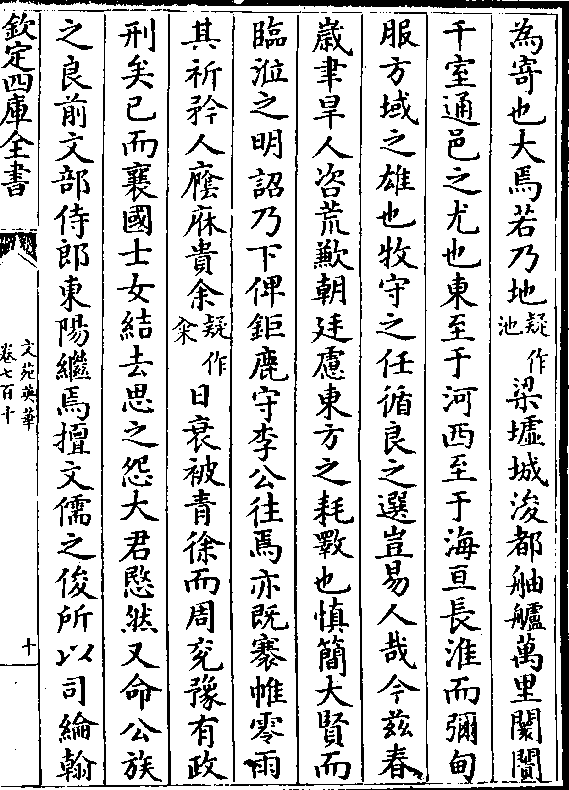 為寄也大焉若乃地疑作池梁墟城浚都舳艫萬里闤闠
千室通邑之尤也東至于河西至于海亘長淮而彌甸
服方域之雄也牧守之任循良之選豈易人哉今兹春
嵗聿旱人咨荒歉朝廷慮東方之耗斁也慎簡大賢而
臨涖之明詔乃下俾鉅鹿守李公往焉亦既褰帷零雨
其祈矜人廕庥貴余疑作籴日衰被青徐而周兖豫有政
刑矣已而襄國士女結去思之怨大君愍然又命公族
之良前文部侍郎東陽繼焉擅文儒之俊所以司綸翰
欽定四庫全書
文苑英華
卷七百十
十